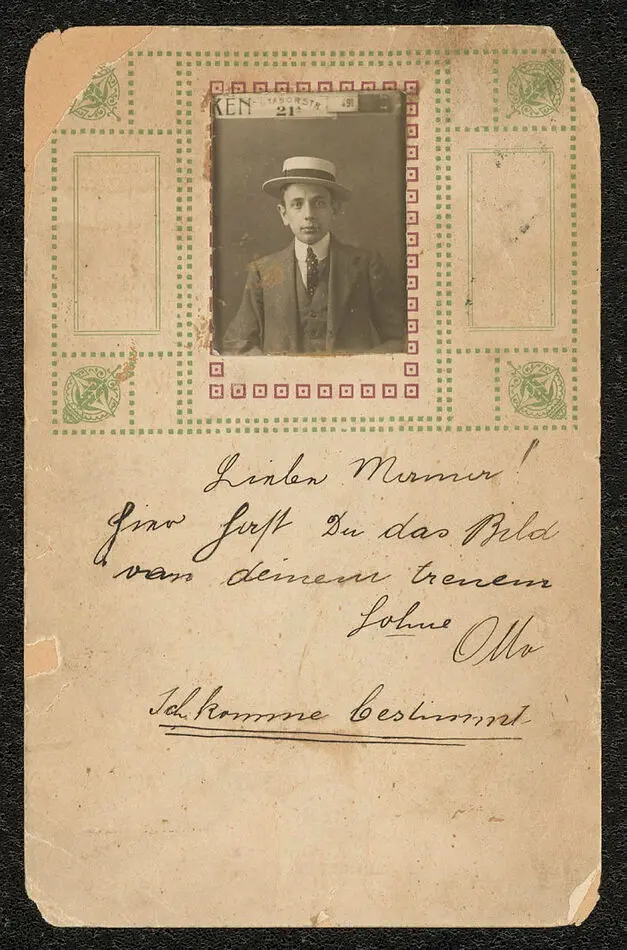 KEN TABORSTR. 491
21ª
Lieber Mamma!
hier hast Du das Bild
von deinem treuem
Sohne
Otto
Ich komme bestimmt